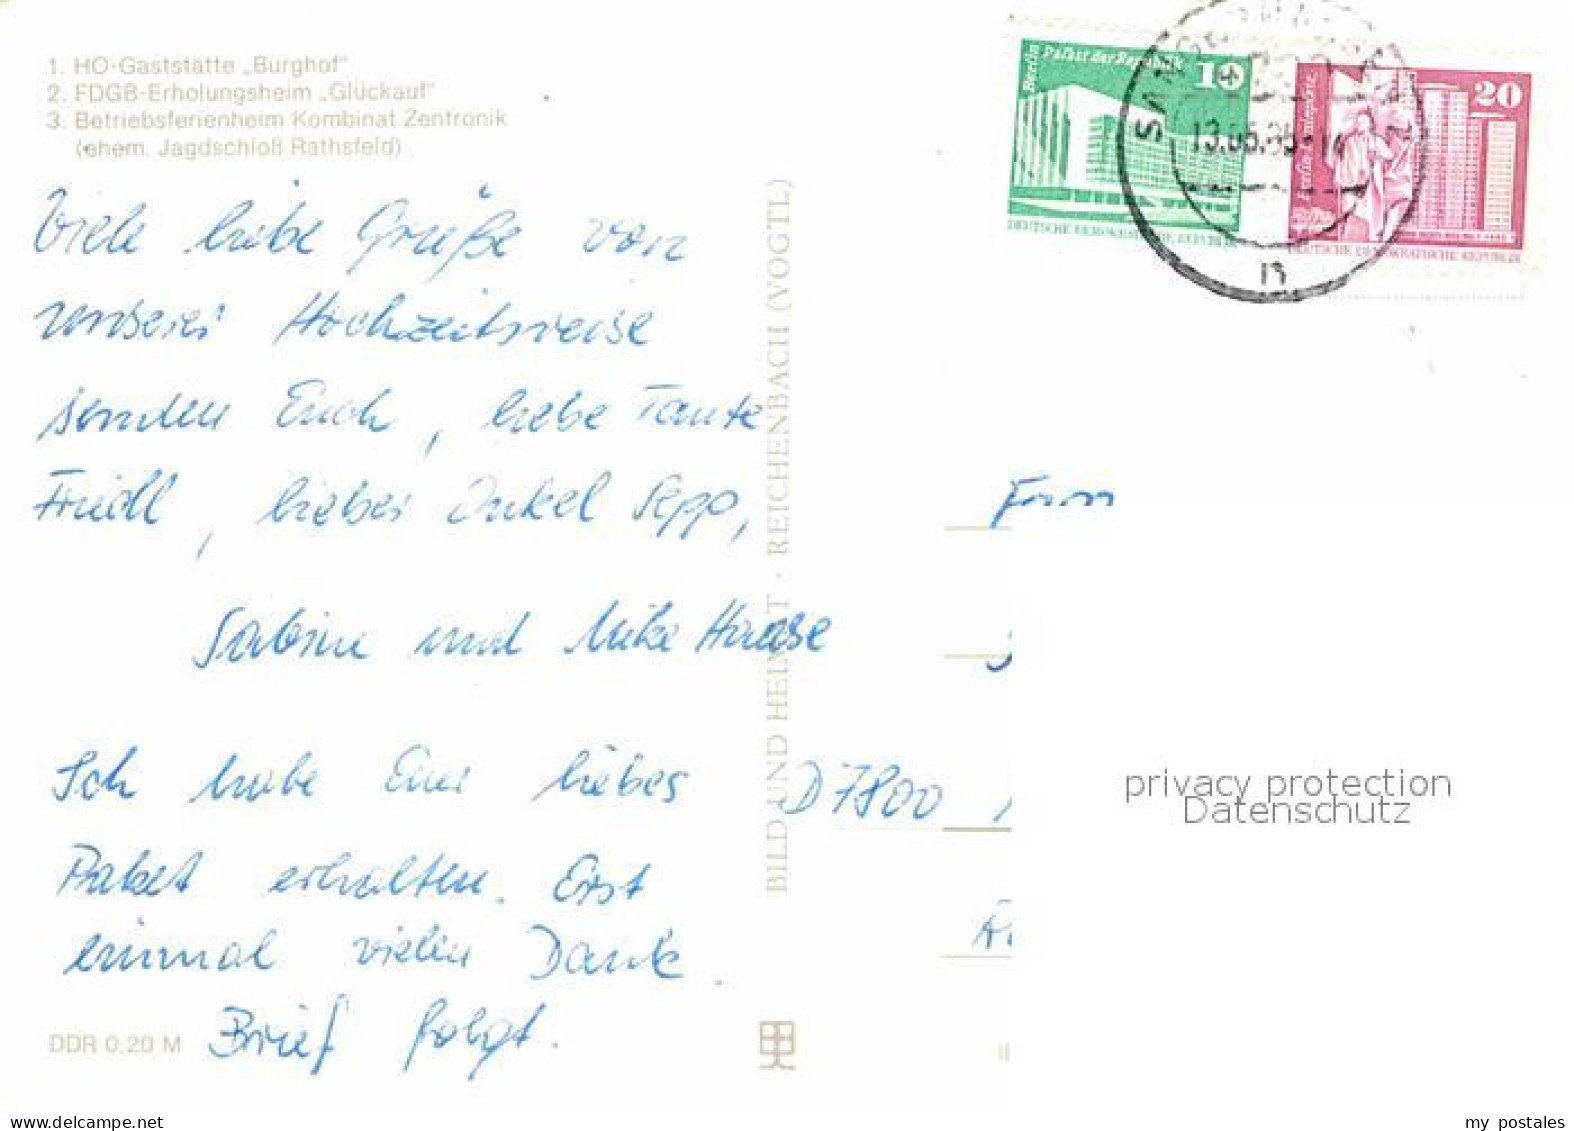 1. HO-Gaststätte „Burghof"
2. FDGB-Erholungsheim „Glückauf"
3. Betriebsferienheim Kombinat Zentronik
(ehem. Jagdschloß Rathsfeld)
Viele liebe Grüße von
unserer Hochzeitsreise
senden Euch, liebe Tante
Friedl, lieber Onkel Sepp,
Sabine und Mike Haase
Ich habe Euer liebes
Paket erhalten. Erst
einmal vielen Dank.
Brief folgt.
DDR 0,20 M
BILD UND HEIMAT · REICHENBACH (VOGTL)
Berlin Palast der Republik
10
DEUTSCHE DEMOKRATISCHE REPUBLIK
Berlin Leninplatz
20
DEUTSCHE DEMOKRATISCHE REPUBLIK
Fam
D 7800
privacy protection
Datenschutz
my postales